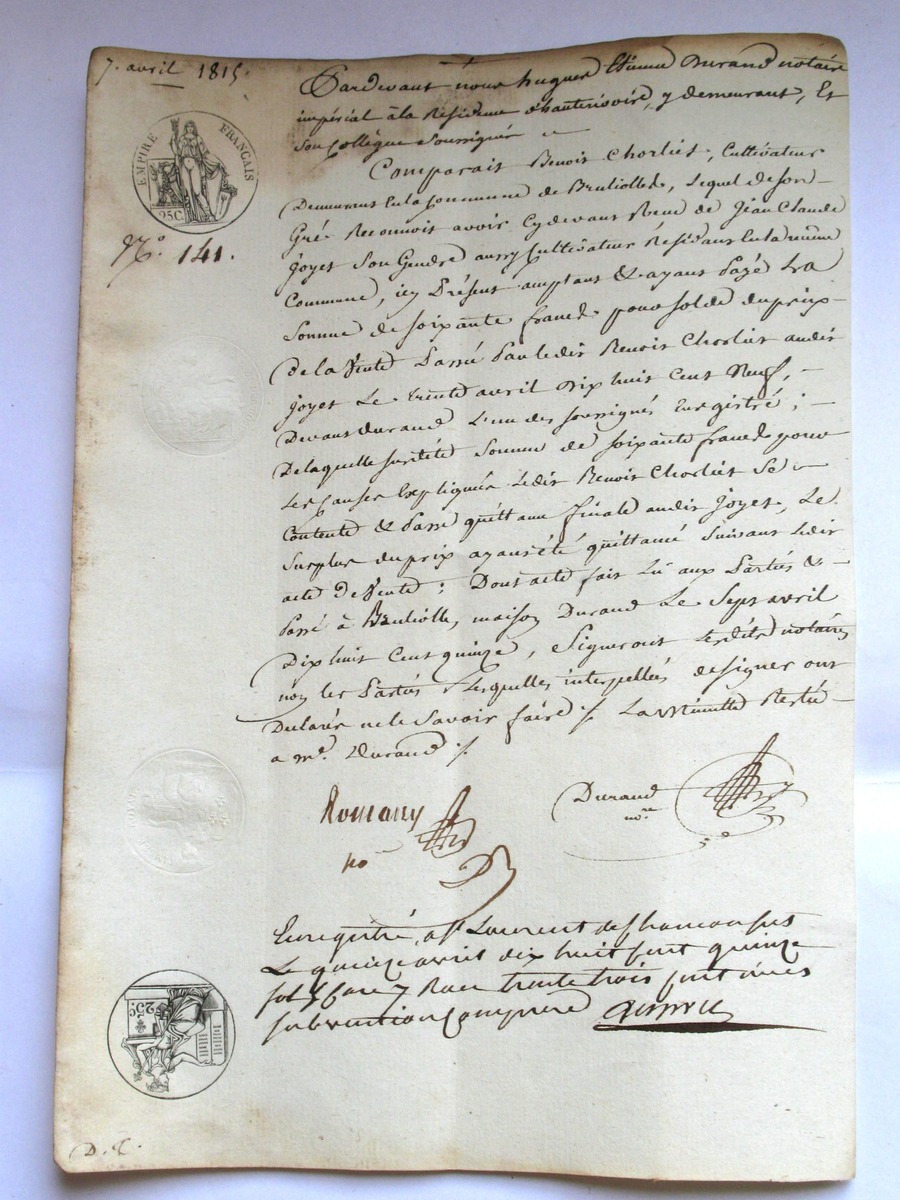 7. avril 1815.
EMPIRE FRANÇAIS
25C.
N.º 141.
Pardevant nous hugues Etienne Durand notaire
impérial à la Résidence d'hauterivoire, y demeurant, Et
son Collègue Soussigné
Comparait Benoit Chorliet, Cultivateur
Demeurant En la Commune de Brulioles, Lequel de son
Gré Reconnoit avoir Cydevant Reçu de Jean Claude
Joyet Son Gendre aussy Cultivateur Résidant En la même
Commune, icy Présent acceptant & ayant Payé La
Somme de soixante francs pour solde du prix
De la Vente Passée Par ledit Benoit Chorliet audit
Joyet Le trente avril dix huit Cent Neuf,
Devant Durand L'un des soussignés Enregistré ;
De laquelle susdite Somme de soixante francs pour
Les Causes Expliquées Ledit Benoit Chorliet Se
Contente & Passe quittance finale audit Joyet, Le
Surplus du prix ayant été quittancé Suivant Ledit
acte de Vente : Dont acte fait Lu aux Parties &
Passé à Brulliolle, maison Durand Le Sept avril
Dix huit Cent quinze, Signeront Lesdits notaires
non les Parties Lesquelles interpellées de signer ont
Déclaré ne le Savoir faire ./. La Minute Restée
a me. Durand ./.
Romany
no
Durand
nre
Enregistré à St Laurent de Chamousset
Le quinze avril dix huit Cent quinze
fol Case 7 Reçu trente trois Centimes
subvention Comprise
25C.
D. C.